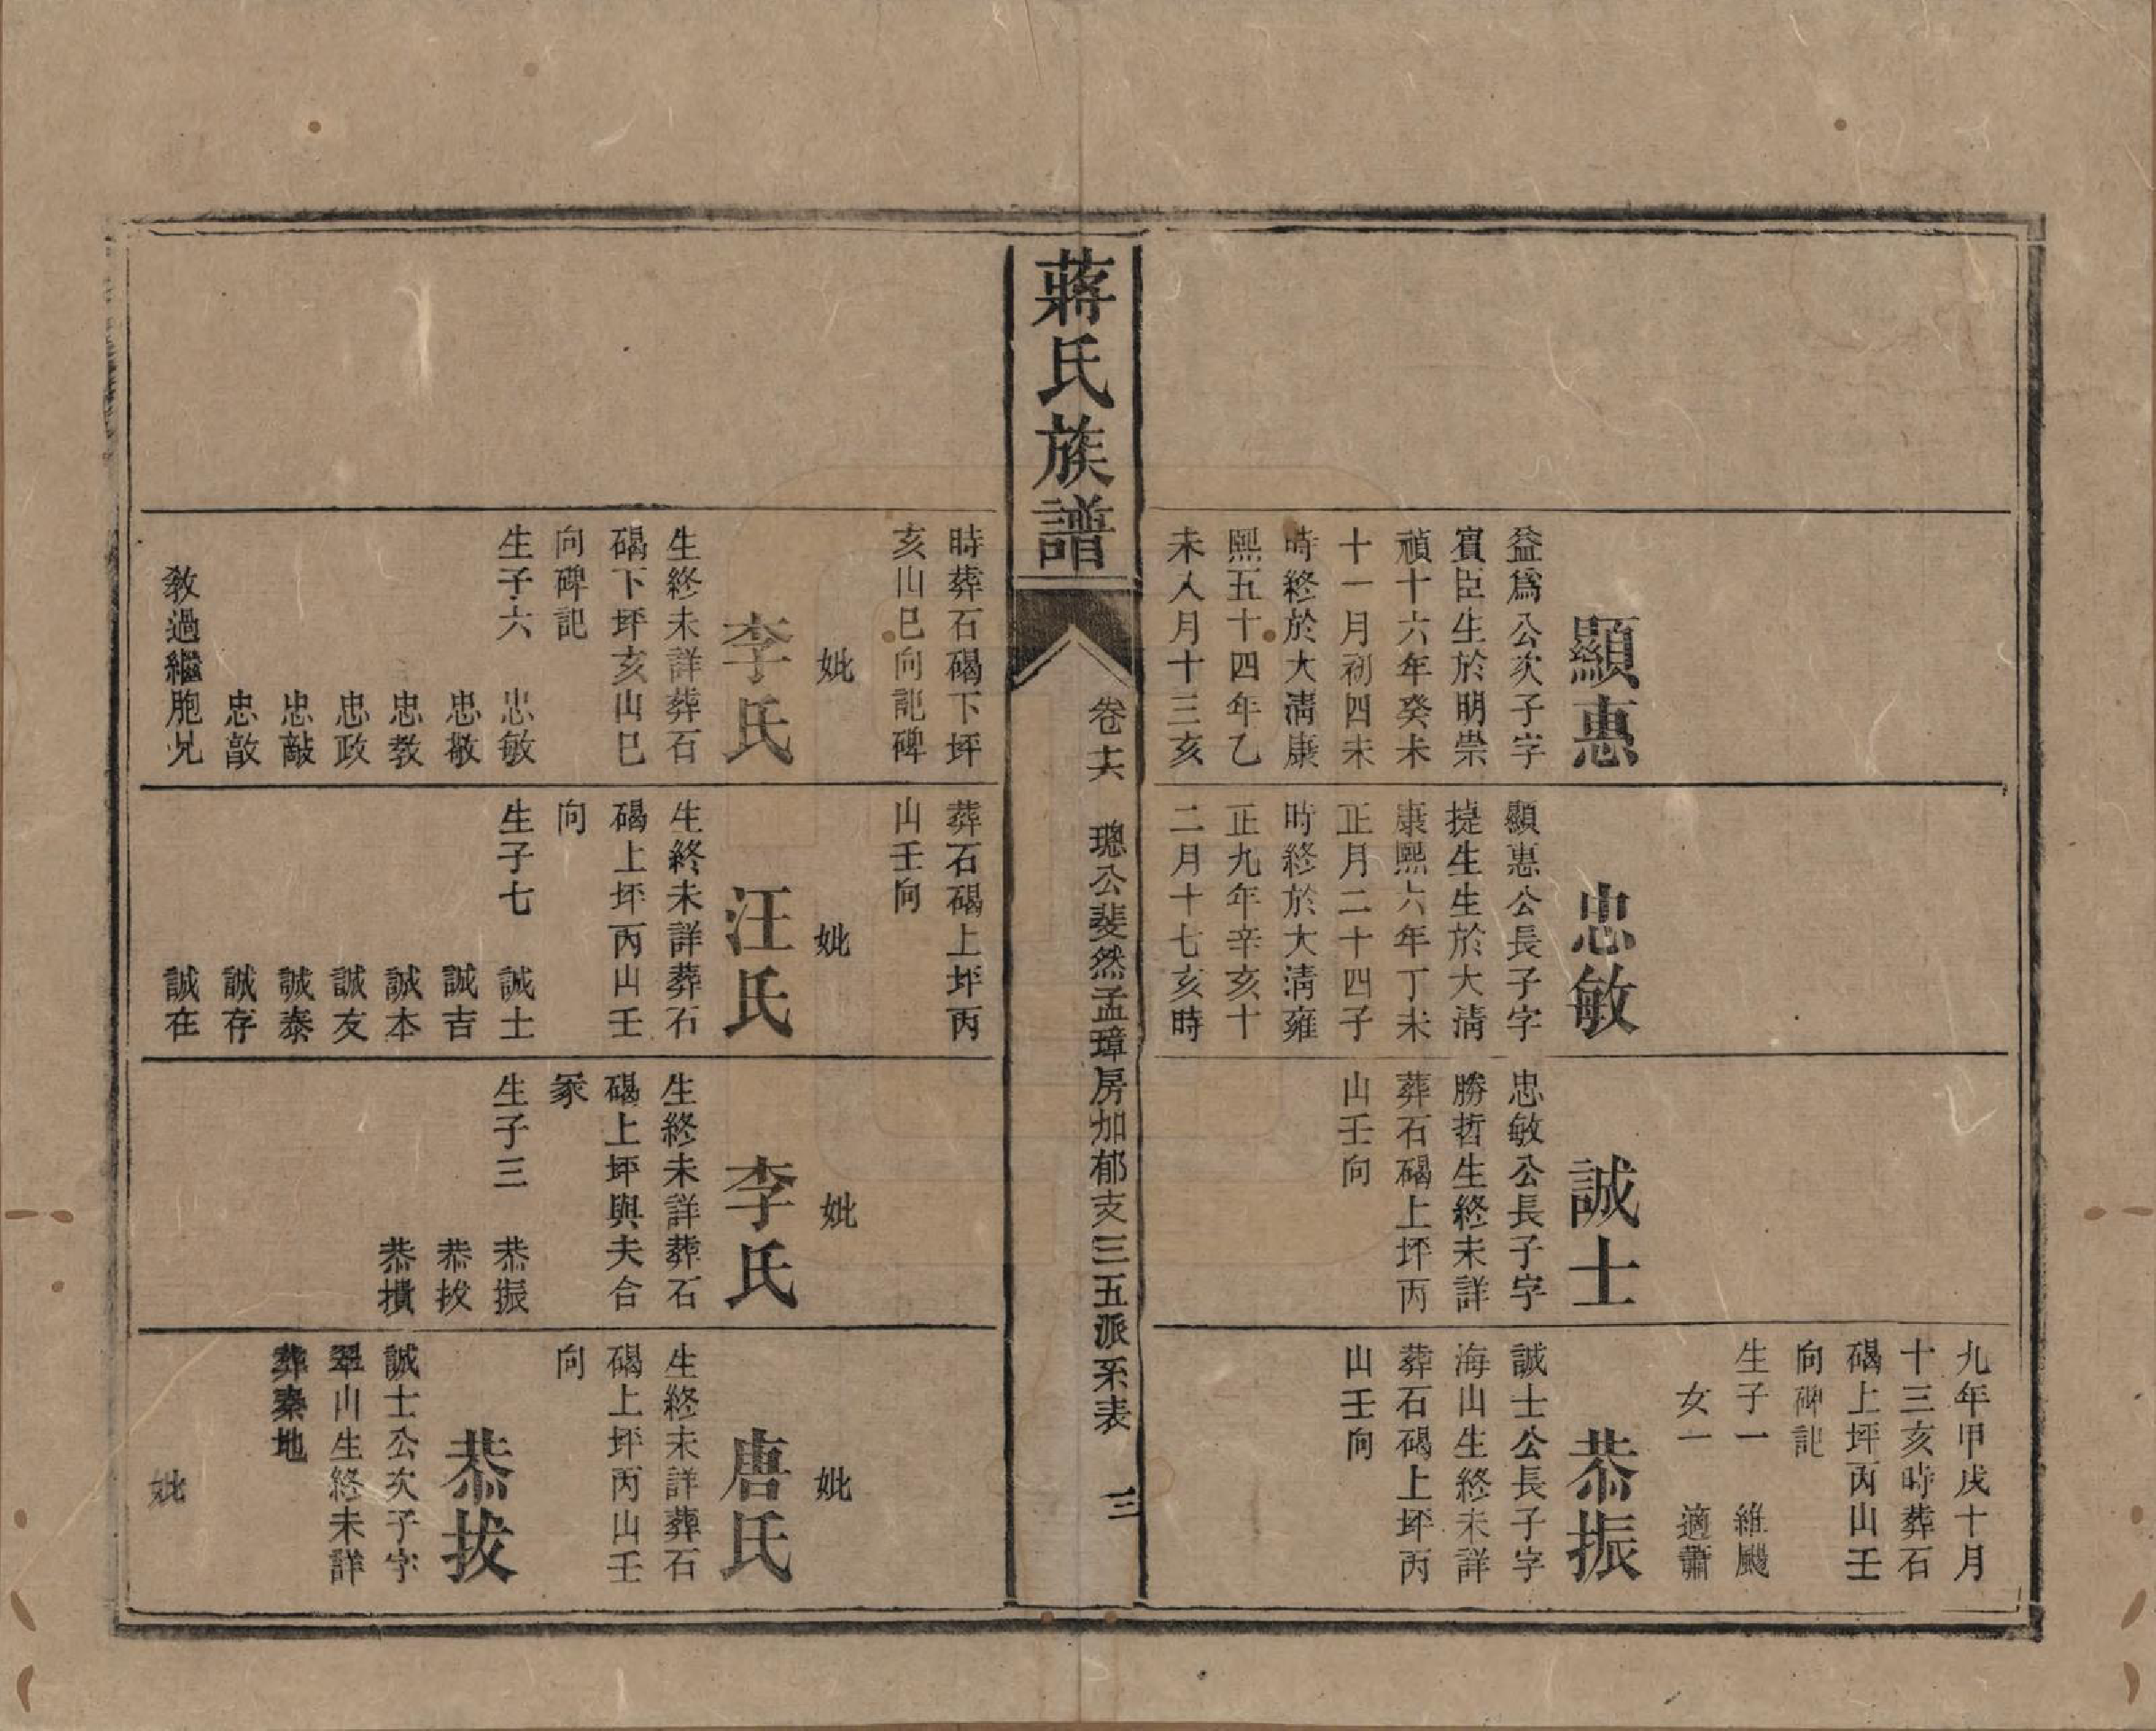 顯惠
益爲公次子字
賓臣生於明崇
禎十六年癸未
十一月初四未
時終於大淸康
熙五十四年乙
未八月十三亥
忠敏
顯惠公長子字
提生生於大淸
康熙六年丁未
正月二十四子
時終於大淸雍
正九年辛亥十
二月十七亥時
誠士
忠敏公長子字
勝哲生終未詳
葬石碣上坪丙
山壬向
九年甲戌十月
十三亥時葬石
碣上坪丙山壬
向碑記
生子一 維颺
女一 適蕭
恭振
誠士公長子字
海山生終未詳
葬石碣上坪丙
山壬向
蔣氏族譜
卷十六
璁公斐然孟璋房加郁支三五派系表
三
時葬石碣下坪
亥山巳向記碑
妣
李氏
生終未詳葬石
碣下坪亥山巳
向碑記
生子六 忠敏
忠敬
忠教
忠政
忠敲
忠敳
教過繼胞兄
葬石碣上坪丙
山壬向
妣
汪氏
生終未詳葬石
碣上坪丙山壬
向
生子七 誠士
誠吉
誠本
誠友
誠泰
誠存
誠在
妣
李氏
生終未詳葬石
碣上坪與夫合
冢
生子三 恭振
恭拔
恭擴
妣
唐氏
生終未詳葬石
碣上坪丙山壬
向
恭拔
誠士公次子字
翠山生終未詳
葬秦地
妣